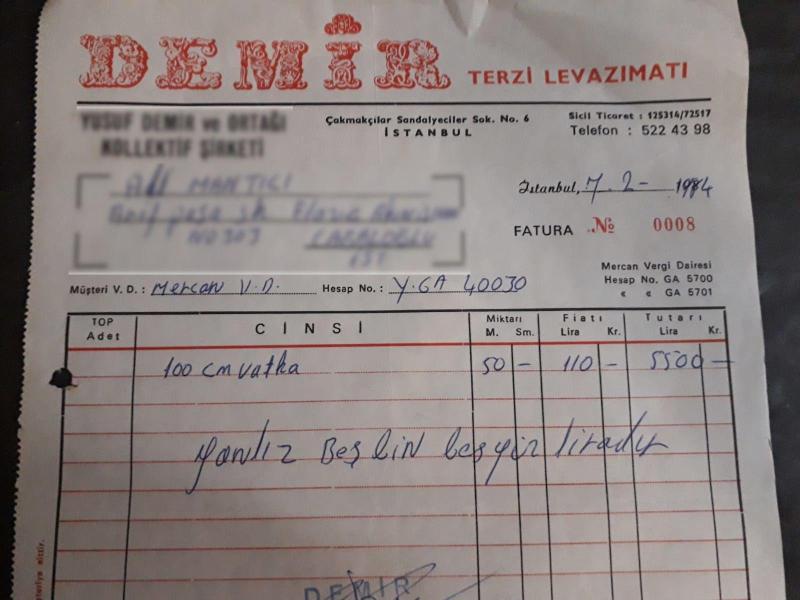 DEMİR TERZİ LEVAZIMATI
YUSUF DEMİR ve ORTAĞI
KOLLEKTİF ŞİRKETİ
Çakmakçılar Sandalyeciler Sok. No. 6
İSTANBUL
Sicil Ticaret : 125314/72517
Telefon : 522 43 98
MANTICI
İstanbul, 7-2- 1984
FATURA No 0008
Mercan Vergi Dairesi
Hesap No. GA 5700
« « GA 5701
Müşteri V. D. : Mercan V.D. Hesap No. : Y.GA 40030
TOP Adet CİNSİ Miktarı M. Sm. Fiatı Lira Kr. Tutarı Lira Kr.
100 cm vatka 50 - 110 - 5500 -
Yanlız Beş bin beşyüz liradır
DEMİR